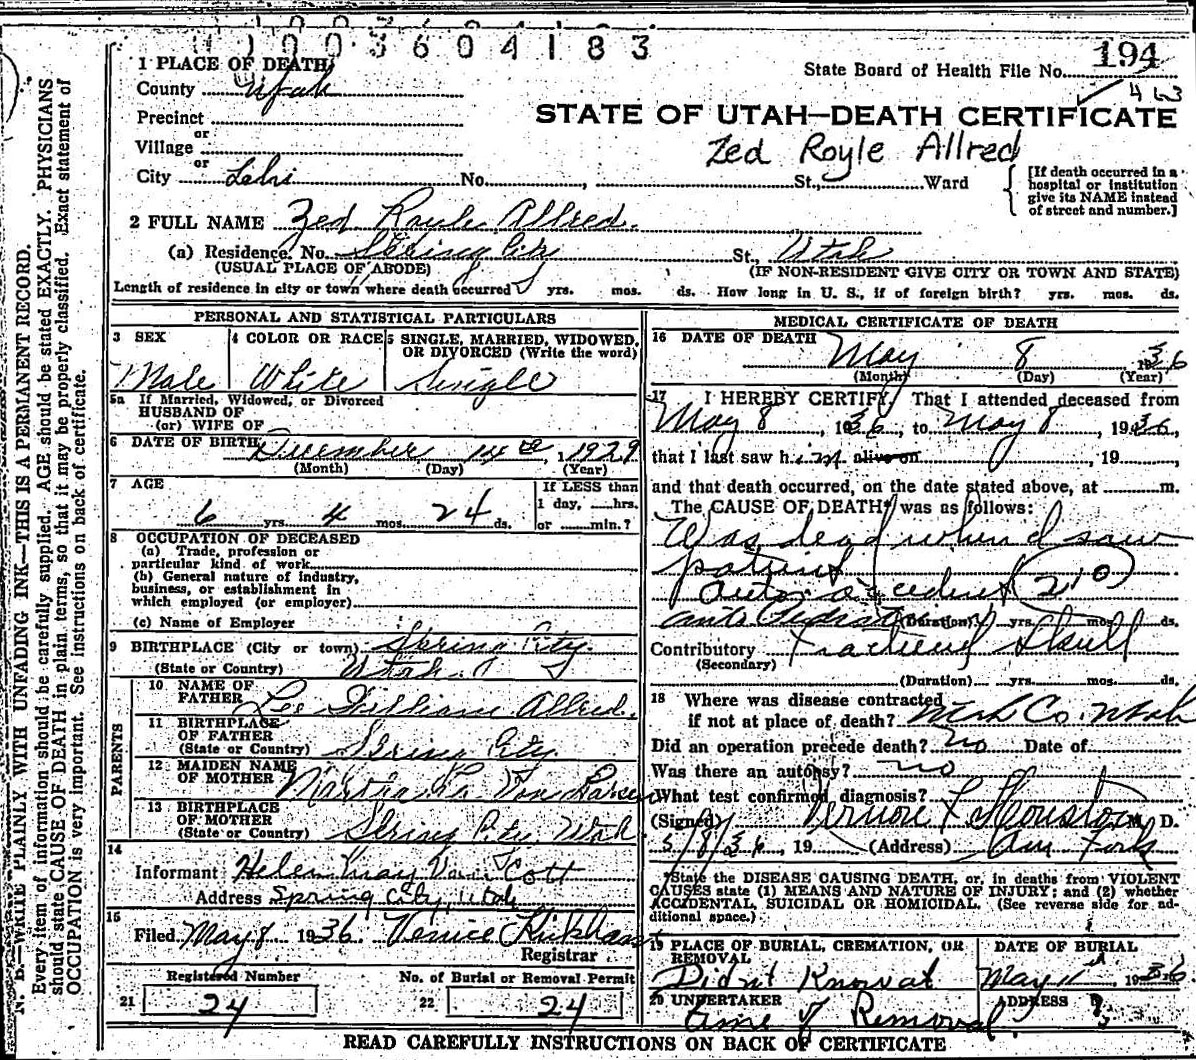 1003604183
194
463
1 PLACE OF DEATH
State Board of Health File No.
County Utah
Precinct
STATE OF UTAH—DEATH CERTIFICATE
or
Village
Zed Royle Allred
or
City Lehi No. , St., Ward
[If death occurred in a hospital or institution give its NAME instead of street and number.]
2 FULL NAME Zed Royle Allred.
(a) Residence. No. Spring City St., Utah
(USUAL PLACE OF ABODE) (IF NON-RESIDENT GIVE CITY OR TOWN AND STATE)
Length of residence in city or town where death occurred yrs. mos. ds. How long in U. S., if of foreign birth? yrs. mos. ds.
PERSONAL AND STATISTICAL PARTICULARS
3 SEX
Male
4 COLOR OR RACE
White
5 SINGLE, MARRIED, WIDOWED, OR DIVORCED (Write the word)
Single
5a If Married, Widowed, or Divorced
HUSBAND OF
(or) WIFE OF
6 DATE OF BIRTH December 14 1929
(Month) (Day) (Year)
7 AGE
6 yrs. 4 mos. 24 ds.
If LESS than
1 day, hrs.
or min.?
8 OCCUPATION OF DECEASED
(a) Trade, profession or
particular kind of work
(b) General nature of industry,
business, or establishment in
which employed (or employer)
(c) Name of Employer
9 BIRTHPLACE (City or town) Spring City.
(State or Country) Utah.
PARENTS
10 NAME OF
FATHER Lee Allred.
11 BIRTHPLACE
OF FATHER
(State or Country) Spring City
12 MAIDEN NAME
OF MOTHER Martha La Von Larsen
13 BIRTHPLACE
OF MOTHER
(State or Country) Spring City, Utah
14
Informant Helen May Cott
Address Spring City, Utah
15
Filed May 8 1936 Venice Kirkham
Registrar
Registered Number
21 24
No. of Burial or Removal Permit
22 24
MEDICAL CERTIFICATE OF DEATH
16 DATE OF DEATH May 8 1936
(Month) (Day) (Year)
17 I HEREBY CERTIFY, That I attended deceased from
May 8, 1936, to May 8, 1936,
that I last saw him alive on , 19 ,
and that death occurred, on the date stated above, at m.
The CAUSE OF DEATH* was as follows:
Was dead when I saw
patient
auto accident 210
auto (Duration) yrs. mos. ds.
Contributory Fractured Skull
(Secondary)
(Duration) yrs. mos. ds.
18 Where was disease contracted
if not at place of death? Utah Co. Utah
Did an operation precede death? no Date of
Was there an autopsy? no
What test confirmed diagnosis?
(Signed) Vernon L Houston M. D.
5/8/36, 19 (Address) Am Fork
*State the DISEASE CAUSING DEATH, or, in deaths from VIOLENT
CAUSES state (1) MEANS AND NATURE OF INJURY; and (2) whether
ACCIDENTAL, SUICIDAL OR HOMICIDAL. (See reverse side for ad-
ditional space.)
19 PLACE OF BURIAL, CREMATION, OR
REMOVAL
Didnt Know at
DATE OF BURIAL
May 11 1936
20 UNDERTAKER
time of Removal
ADDRESS
READ CAREFULLY INSTRUCTIONS ON BACK OF CERTIFICATE
N. B.—WRITE PLAINLY WITH UNFADING INK—THIS IS A PERMANENT RECORD.
Every item of information should be carefully supplied. AGE should be stated EXACTLY. PHYSICIANS
should state CAUSE OF DEATH in plain terms, so that it may be properly classified. Exact statement of
OCCUPATION is very important. See instructions on back of certificate.